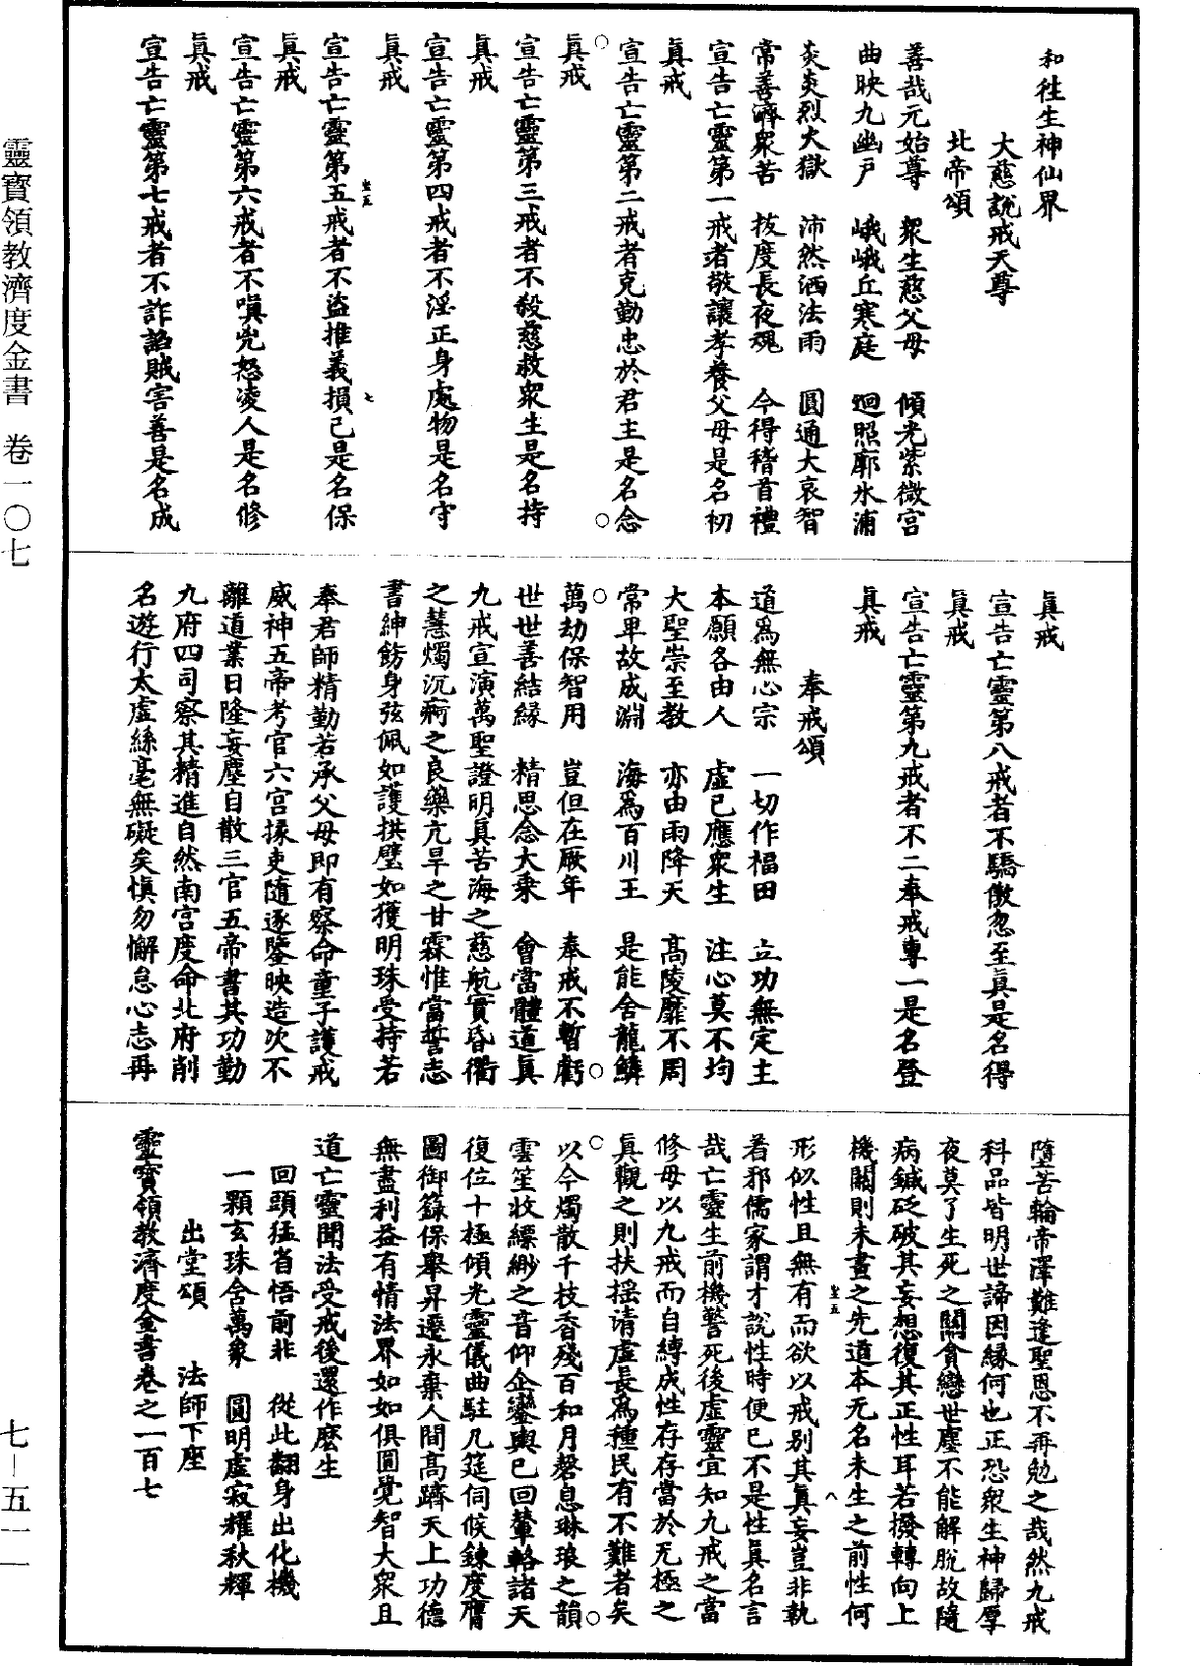 靈寶領教濟度金書　卷一〇七
七－五一一
和徃生神仙界
大慈說戒天尊
北帝頌
善哉元始尊　衆生慈父母　傾光紫微宮
曲映九幽戶　峨峨丘寒庭　迴照廓氷浦
炎炎烈火獄　沛然洒法雨　圓通大哀智
常善濟衆苦　拔度長夜魂　今得稽首禮
宣告亡靈第一戒者敬讓孝養父母是名初
真戒
宣告亡靈第二戒者克勤忠於君主是名念
真戒
宣告亡靈第三戒者不殺慈救衆生是名持
真戒
宣告亡靈第四戒者不淫正身處物是名守
真戒
宣告亡靈第五戒者不盜推義損己是名保
真戒
宣告亡靈第六戒者不嗔兇怒凌人是名修
真戒
宣告亡靈第七戒者不詐諂賊害善是名成
真戒
宣告亡靈第八戒者不驕傲忽至真是名得
真戒
宣告亡靈第九戒者不二奉戒專一是名登
真戒
奉戒頌
道爲無心宗　一切作福田　立功無定主
本願各由人　虛已應衆生　注心莫不均
大聖崇至教　亦由雨降天　高陵靡不周
常卑故成淵　海爲百川王　是能舍龍鱗
萬劫保智用　豈但在厥年　奉戒不暫虧
世世善結緣　精思念大乘　會當體道真
九戒宣演萬聖證明真苦海之慈航實昏衢
之慧燭沉痾之良藥亢旱之甘霖惟當誓志
書紳飭身弦佩如護拱璧如獲明珠受持若
奉君師精勤若承父母即有察命童子護戒
威神五帝考官六宮掾吏隨逐鑒映造次不
離道業日隆妄塵自散三官五帝書其功勤
九府四司察其精進自然南宮度命北府削
名遊行太虛絲毫無礙矣慎勿懈怠心志再
墮苦輪帝澤難逢聖恩不再勉之哉然九戒
科品皆明世諦因緣何也正恐衆生神歸厚
夜莫了生死之關貪戀世塵不能解脫故隨
病鍼砭破其妄想復其正性耳若撥轉向上
機關則未畫之先道本无名未生之前性何
形似性且無有而欲以戒別其真妄豈非執
着邪儒家謂才說性時便已不是性真名言
哉亡靈生前機警死後虛靈宜知九戒之當
修毋以九戒而自縛成性存存當於无極之
真觀之則扶搖清虛長爲種民有不難者矣
以今燭散千枝香殘百和月磬息琳琅之韻
雲笙收縹緲之音仰企鑾輿已回輦輅諸天
復位十極傾光靈儀曲駐几筵伺候鍊度膺
圖御籙保舉昇遷永棄人間高躋天上功德
無盡利益有情法界如如俱圓覺智大衆且
道亡靈聞法受戒後還作麽生
回頭猛省悟前非　從此翻身出化機
一顆玄珠含萬象　圓明虛寂耀秋輝
出堂頌　　法師下座
靈寶領教濟度金書卷之一百七